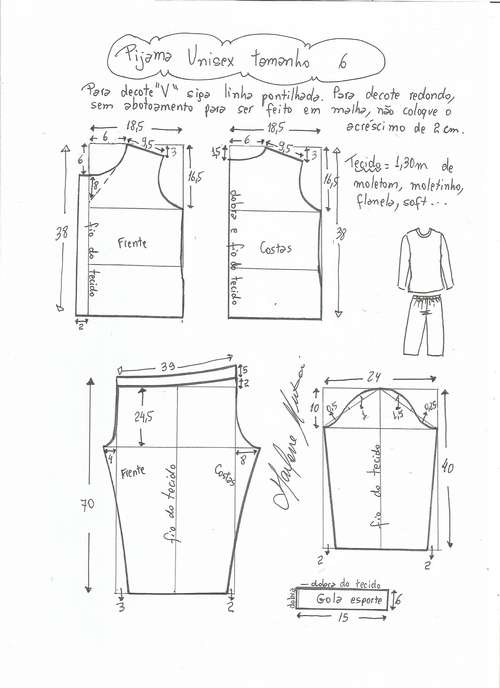 Pijama Unisex tamanho 6
Para decote "V" siga linha pontilhada. Para decote redondo,
sem abotoamento para ser feito em malha, não coloque o
acréscimo de 2 cm.
18,5
6
9,5
3
6
8
16,5
38
fio do tecido
Frente
2
18,5
6
9,5
3
1,5
16,5
38
dobra e fio do tecido
Costas
Tecido = 1,30m de
moletom, moletinho,
flanela, soft...
39
5
2
24,5
70
4
8
Frente
fio do tecido
Costas
3
2
Marlene Mukai
24
10
0,5
1,5
0,25
40
fio do tecido
2
2
dobra do tecido
dobra
Gola esporte
6
15